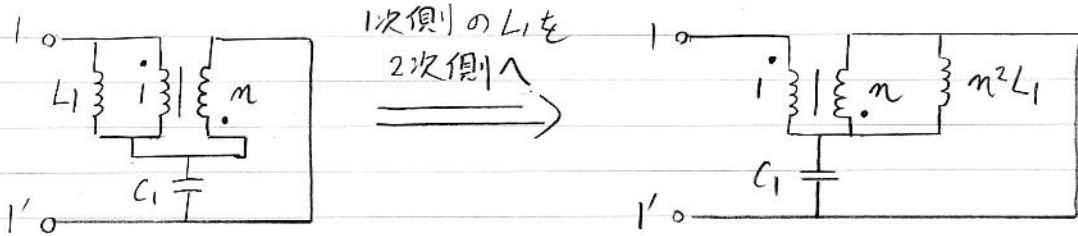 1
L₁
1
n
C₁
1′
1次側のL₁を
2次側へ
1
1
n
n²L₁
C₁
1′